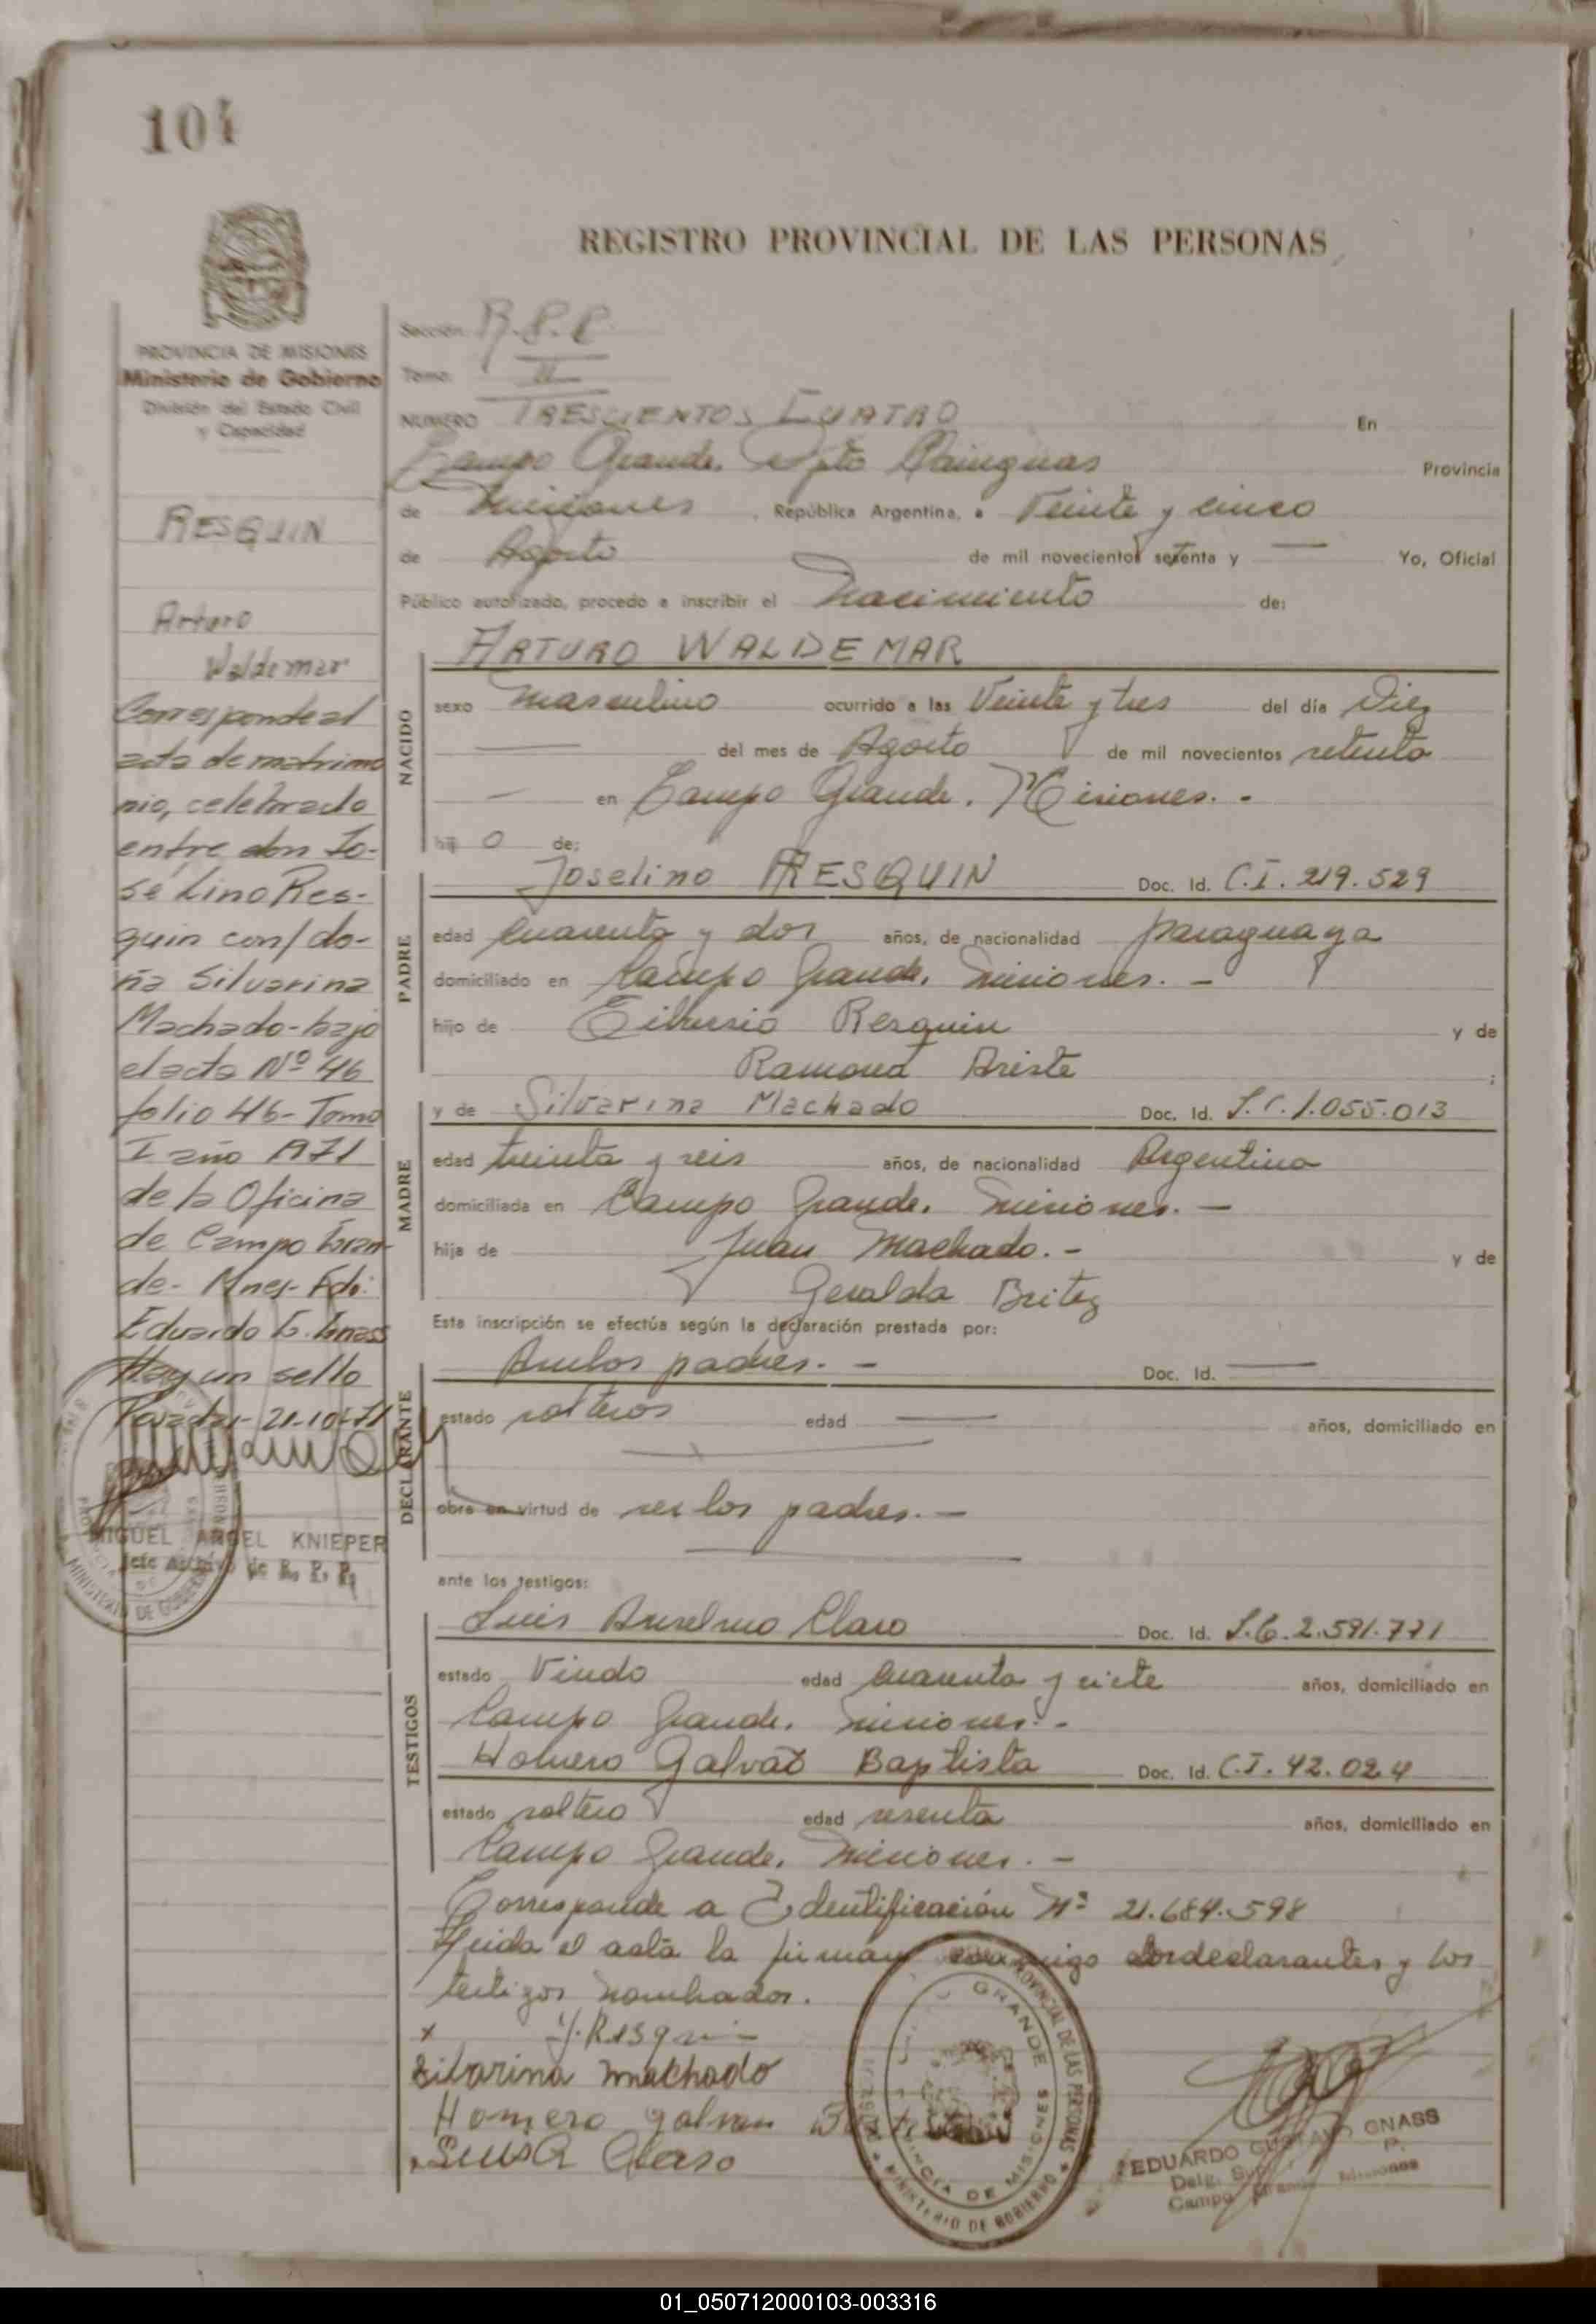 104
REGISTRO PROVINCIAL DE LAS PERSONAS
PROVINCIA DE MISIONES
Ministerio de Gobierno
División del Estado Civil
y Capacidad
RESQUIN
Arturo
Waldemar
Corresponde al
acta de matrimo
nio, celebrado
entre don Jo-
se Lino Res-
quin con/ do-
ña Silvarina
Machado - bajo
el acta Nº 46
folio 46 - Tomo
I año 1971
de la Oficina
de Campo Gran-
de - Mnes - Fdo:
Eduardo G. Gnass
Hay un sello
Posadas - 21-10-71
MIGUEL ANGEL KNIEPER
Jefe Archivo de R. P. P.
Sección R.P.P.
Tomo II
NUMERO TRESCIENTOS CUATRO En
Campo Grande. Dpto Cainguas Provincia
de Misiones, República Argentina, a Veinte y cinco
de Agosto de mil novecientos setenta y — Yo, Oficial
Público autorizado, procedo a inscribir el Nacimiento de:
ARTURO WALDEMAR
NACIDO
sexo masculino ocurrido a las Veinte y tres del día Diez
— del mes de Agosto de mil novecientos setenta
— en Campo Grande. Misiones. -
hij o de:
PADRE
Joselino RESQUIN Doc. Id. C.I. 219.529
edad cuarenta y dos años, de nacionalidad paraguaya
domiciliado en Campo Grande. Misiones. -
hijo de Resquin y de
Ramona ;
MADRE
y de Silvarina Machado Doc. Id. L.C. 1.055.013
edad treinta y seis años, de nacionalidad Argentina
domiciliada en Campo Grande. Misiones. -
hija de Juan Machado. - y de
Geralda Britez
Esta inscripción se efectúa según la declaración prestada por:
DECLARANTE
Ambos padres. - Doc. Id. —
estado solteros edad — años, domiciliado en
obra en virtud de ser los padres. -
ante los testigos:
TESTIGOS
Luis Anselmo Claro Doc. Id. L.E. 2.591.771
estado Viudo edad cuarenta y siete años, domiciliado en
Campo Grande. Misiones. -
Homero Galvao Baptista Doc. Id. C.I. 42.024
estado soltero edad sesenta años, domiciliado en
Campo Grande. Misiones. -
Corresponde a Identificación Nº 21.684.598
Leida el acta la firman conmigo los declarantes y los
testigos nombrados.
x J. Resquin
Silvarina Machado
Homero galvao
Luis A Claro
REGISTRO PROVINCIAL DE LAS PERSONAS
CAMPO GRANDE
PROVINCIA DE MISIONES
MINISTERIO DE GOBIERNO
EDUARDO GUSTAVO GNASS
Campo Grande Misiones
01_050712000103-003316